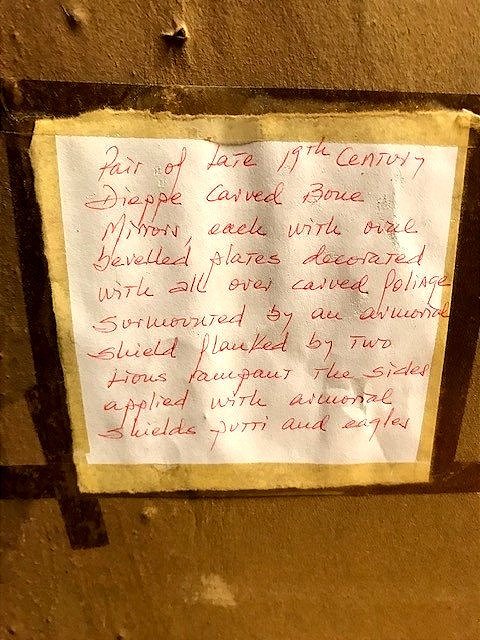 Pair of Late 19th Century
Dieppe Carved Bone
Mirrors, each with oval
bevelled plates decorated
with all over carved foliage
surmounted by an armorial
shield flanked by two
Lions rampant the sides
applied with armorial
shields putti and eagles